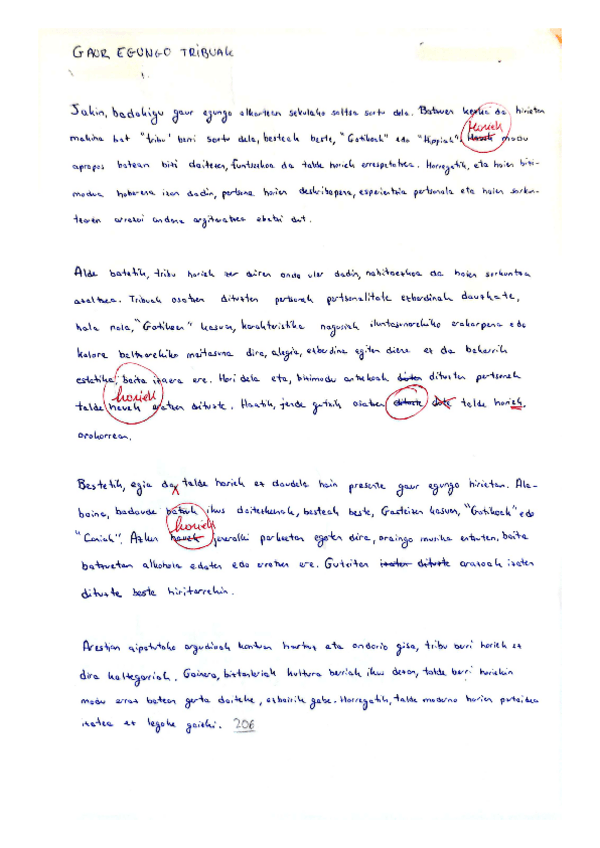 GAUR EGUNGO TRIBUAK
Jakin, badakigu gaur egungo elkartean sekulako saltsa sortu dela. Batzuen kezka da hirietan
makina bat "tribu" berri sortu dela, besteak beste, "Gotikoak" edo "Hippiak". hauek horiek modu
apropos batean bizi daitezen, funtsezkoa da talde horiek errespetatzea. Horregatik, eta haien bizi-
modua hoberena izan dadin, pertsona horien deskribapena, esperientzia pertsonala eta haien sorkun-
tzaren arrazoi ondena argitaratzea ebatzi dut.
Alde batetik, tribu horiek zer diren ondo uler dadin, nahitaezkoa da haien sorkuntza
azaltzea. Tribuak osatzen dituzten pertsonek pertsonalitate ezberdinak dauzkate,
hala nola, "Gotikoen" kasuan, karakteristika nagusiak iluntasunarekiko erakarpena edo
kolore beltzarekiko maitasuna dira, alegia, ezberdina egiten diena ez da bakarrik
estetika, baita izaera ere. Hori dela eta, bizimodu antzekoak dituzten pertsonek
talde hauek horiek osatzen dituzte. Haatik, jende gutxik osatzen dituzte dute talde horiek,
orokorrean.
Bestetik, egia da, talde horiek ez daudela hain presente gaur egungo hirietan. Ala-
baina, badaude batzuk ikus daitezkeenak, besteak beste, Gasteizen kasuan, "Gotikoak" edo
"Caniak". Azken hauek horiek jeneralki parkeetan egoten dira, oraingo musika entzuten, baita
batzuetan alkohola edaten edo erretzen ere. Gutxitan izaten dituzte arazoak izaten
dituzte beste hiritarrekin.
Arestian aipatutako argudioak kontuan hartuz eta ondorio gisa, tribu berri horiek ez
dira kaltegarriak. Gainera, biztanleriak kultura berriak ikus dezan, talde berri horiekin
modu erraz batean gerta daiteke, ezbairik gabe. Horregatik, talde moderno horien partaidea
izatea ez legoke gaizki. 206